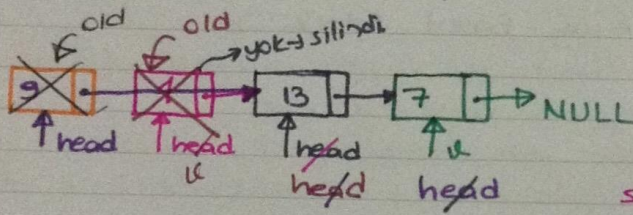 old old
yok → silindi
9 13 7 NULL
head head head
head head
s